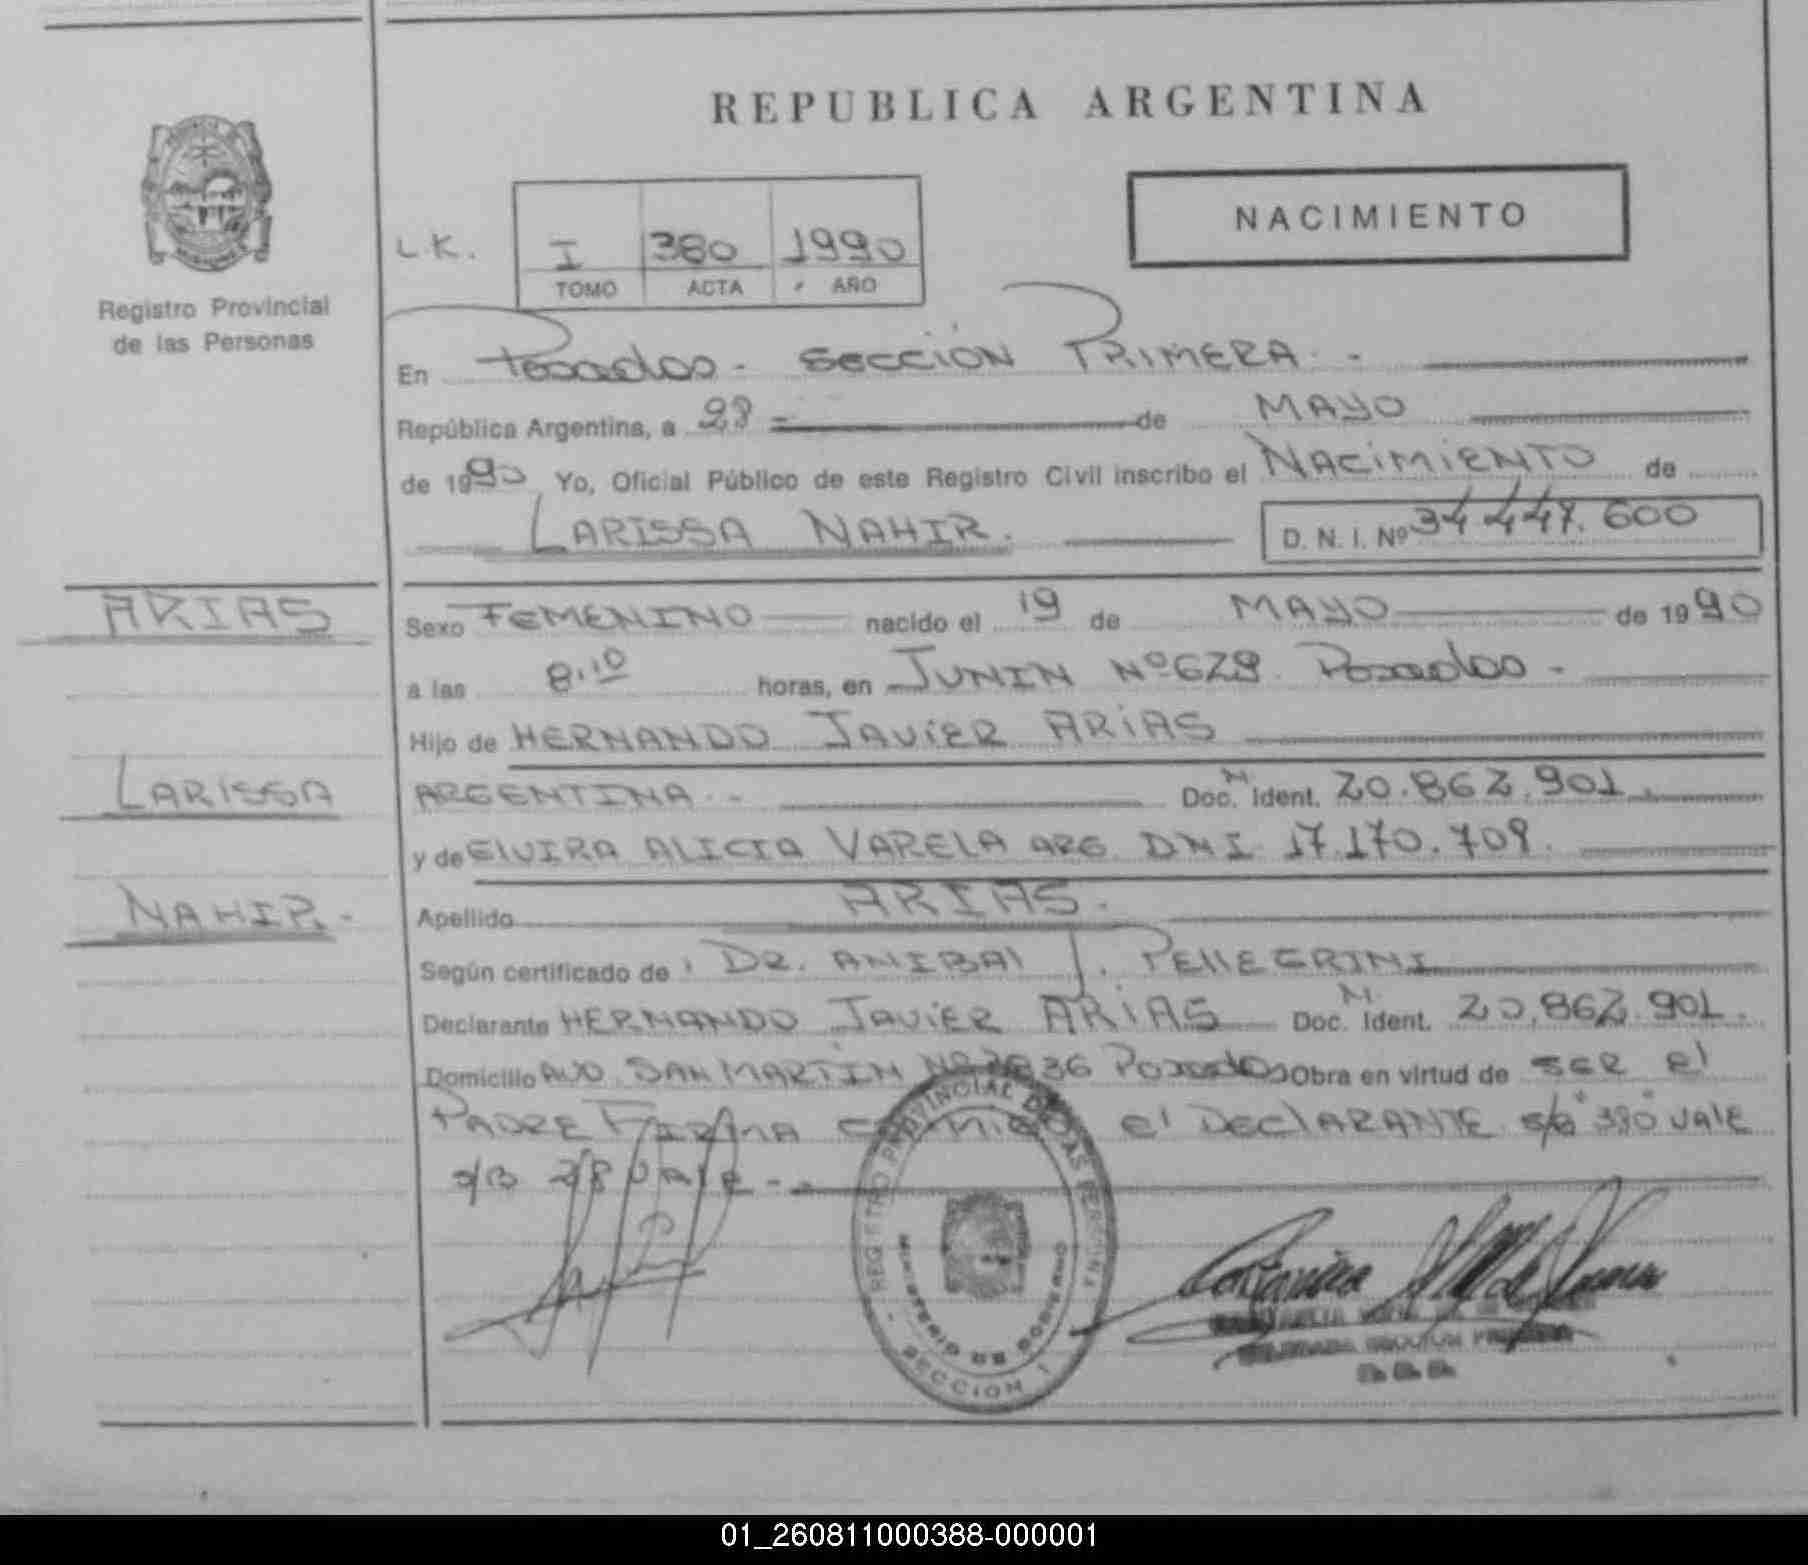 REPUBLICA ARGENTINA
NACIMIENTO
Registro Provincial
de las Personas
L.K.
I 380 1990
TOMO ACTA AÑO
En Posadas - SECCIÓN PRIMERA. -
República Argentina, a 28 - de MAYO
de 1990 Yo, Oficial Público de este Registro Civil inscribo el NACIMIENTO de
LARISSA NAHIR.
D. N. I. Nº 34.447.600
ARIAS
Sexo FEMENINO nacido el 19 de MAYO de 1990
a las 8.10 horas, en JUNIN Nº 629. Posadas -
Hijo de HERNANDO JAVIER ARIAS
LARISSA
ARGENTINA. - Doc. N. Ident. 20.862.901.
y de ElVIRA ALICIA VARELA ARG. DNI 17.170.709.
NAHIR -
Apellido ARIAS.
Según certificado de DR. ANIBAl J. PEllEGRINI
Declarante HERNANDO JAVIER ARIAS Doc. N. Ident. 20.862.901.
Domicilio AVD. SAN MARTÍN Nº 36 Posadas Obra en virtud de SER El
PADRE FIRMA CONMIGO El DEClARANTE s/a "380" VAlE
s/B 28 VAlE - -
REGISTRO PROVINCIAL DE LAS PERSONAS
MINISTERIO DE GOBIERNO
SECCION 1
DELEGADA SECCION PRIMERA
01_260811000388-000001